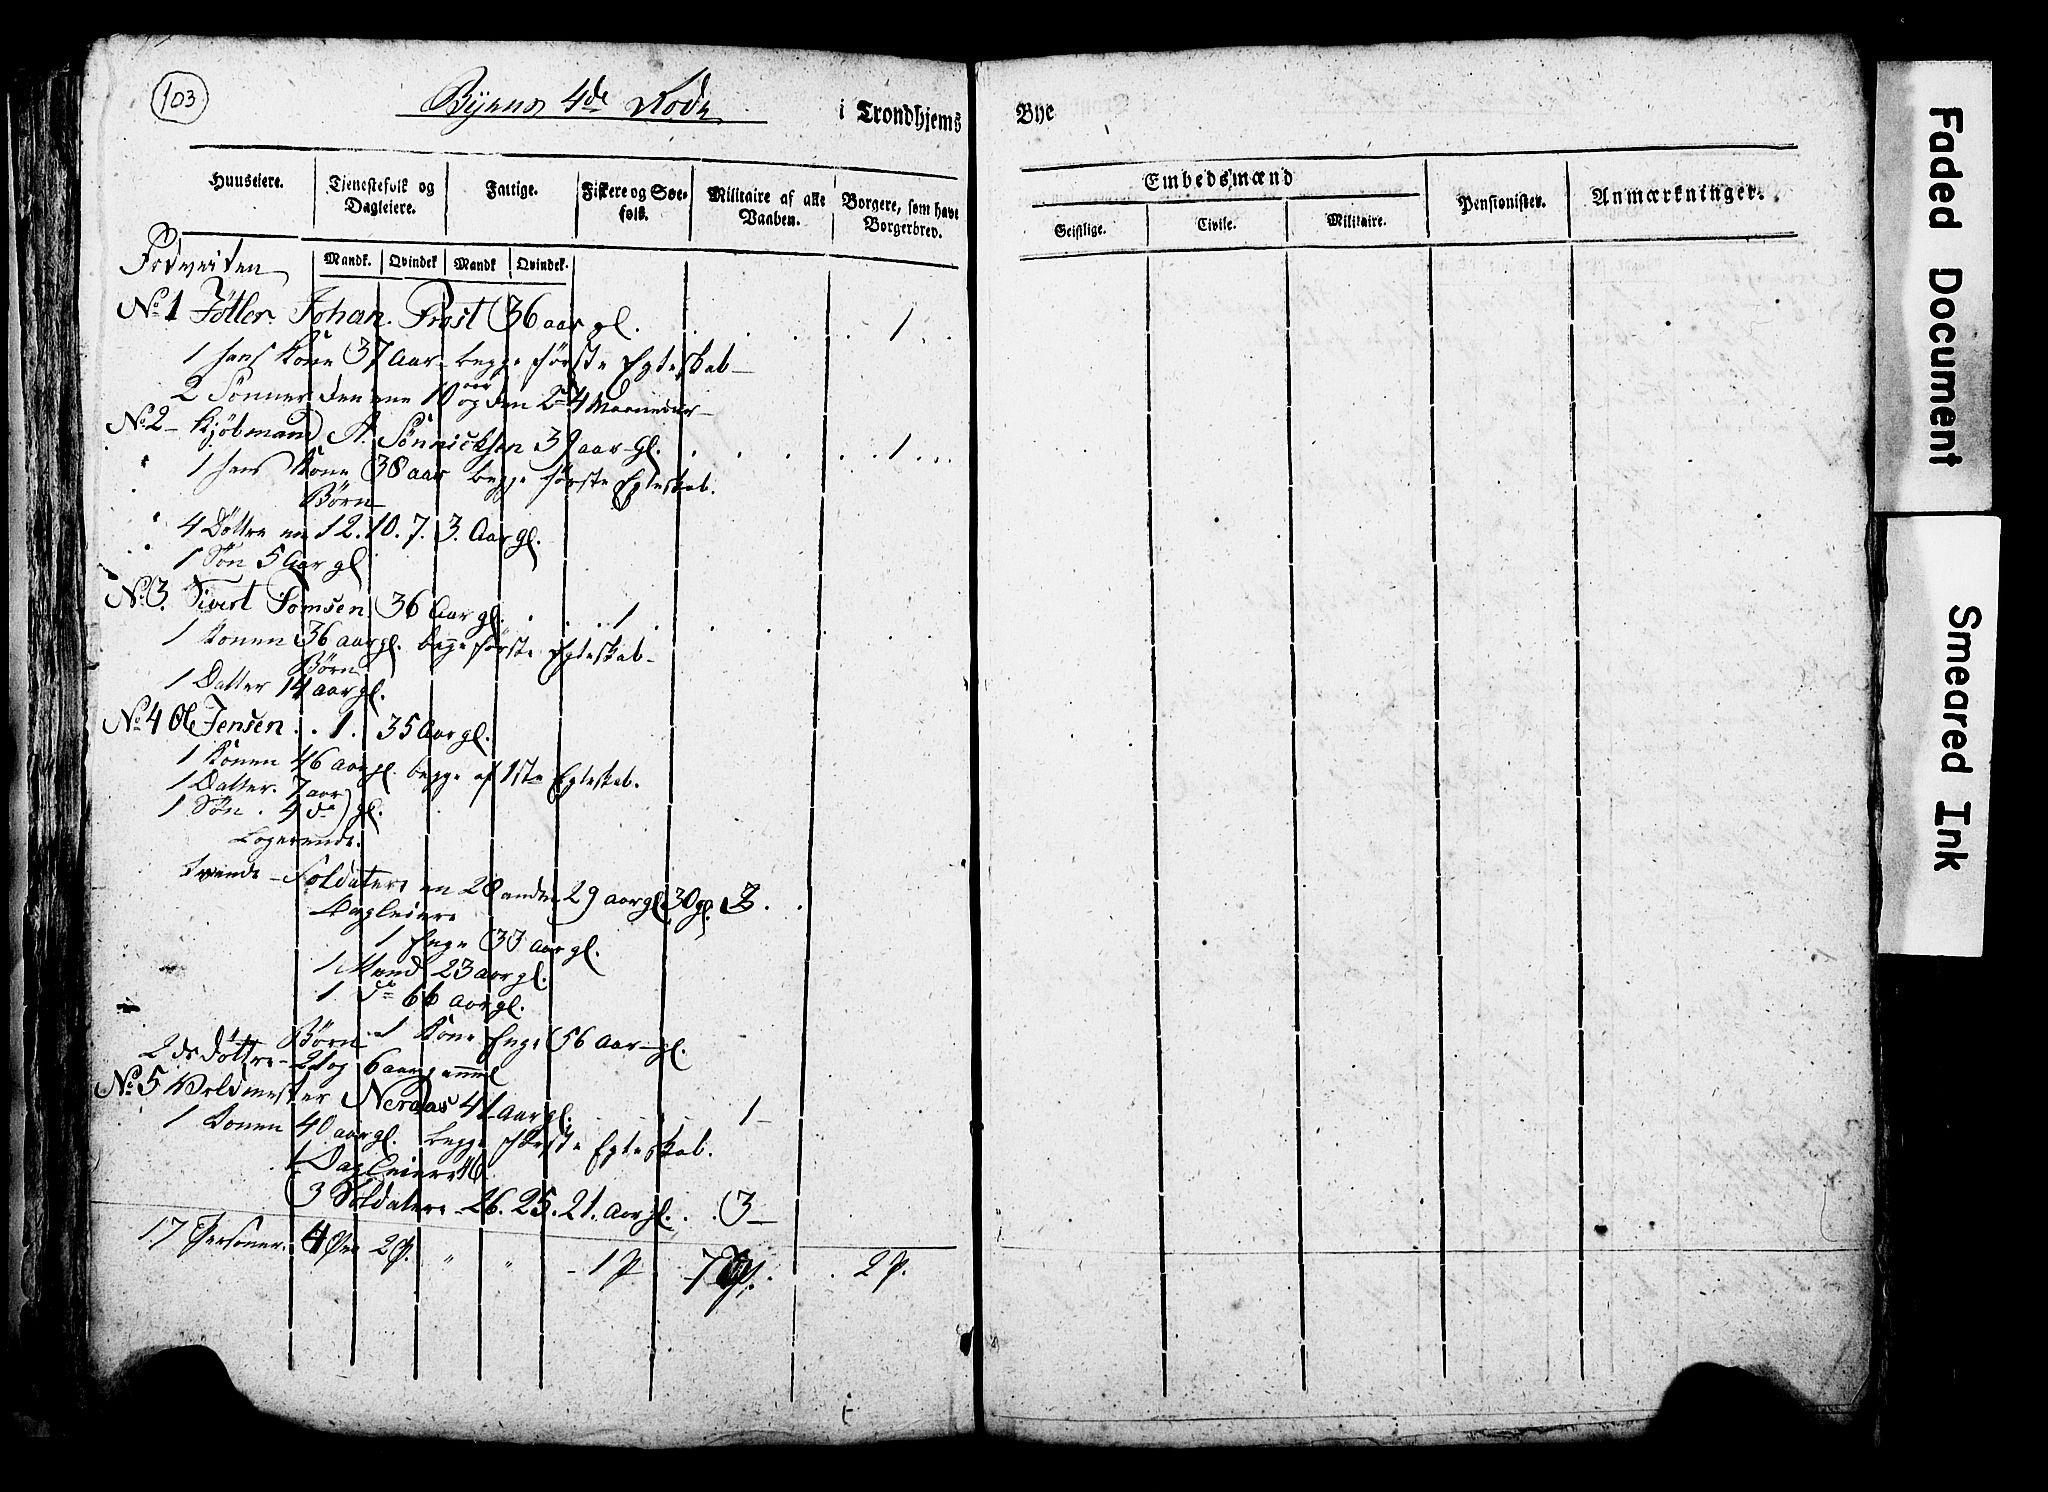 103
Byens 4de Rode i Trondhjems Bye
Huuseiere. Tjenestefolk og Dagleiere. Fattige. Fiskere og Søefolk. Militaire af alle Vaaben. Borgere, som have Borgerbrev. Embedsmænd Pensionister. Anmærkninger.
Geistlige. Civile. Militaire.
Mandk. Qvindek Mandk Qvindek.
No 1 Johan Prost 36 aar gl. 1
1 hans Kone 37 Aar begge første Egteskab
2 Sønner den ene 10 aar og den 2den 4 Maaneder
No 2 Kjøbmand A. Sønnichsen 39 aar gl. 1
1 hans Kone 38 aar begge første Egteskab.
Børn
4 Døttre en 12. 10. 7. 3. Aar gl.
1 Søn 5 Aar gl
No 3. Sivert Tomsen 36 Aar gl. 1
1 Konen 36 aar gl. begge første Egteskab
Børn
1 Datter 14 aar gl.
No 4 Ole Jensen . . 1 . 35 Aar gl.
1 Konen 46 aar gl. begge af 1ste Egteskab.
1 Datter. 7 aar
1 Søn . 4 do gl.
Logerende.
Soldatere en 28 anden 29 aar gl. 30 gl. 3
Dagleiere
1 Enge 33 Aar gl.
1 Mand 23 aar gl.
1 do 66 aar gl.
1 Kone Enge 56 Aar gl.
Børn
2 do Døttre 21 og 6 aar gammel
No 5 Voldmester Nerdas 41 Aar gl. 1
1 Konen 40 aar gl. begge første Egteskab.
1 Dagleiere 46
3 Soldatere 26. 25. 21. Aar gl. 3
17 Personer. 4 2 P. " " 1 P 7 P. 2 P.
Faded Document
Smeared Ink